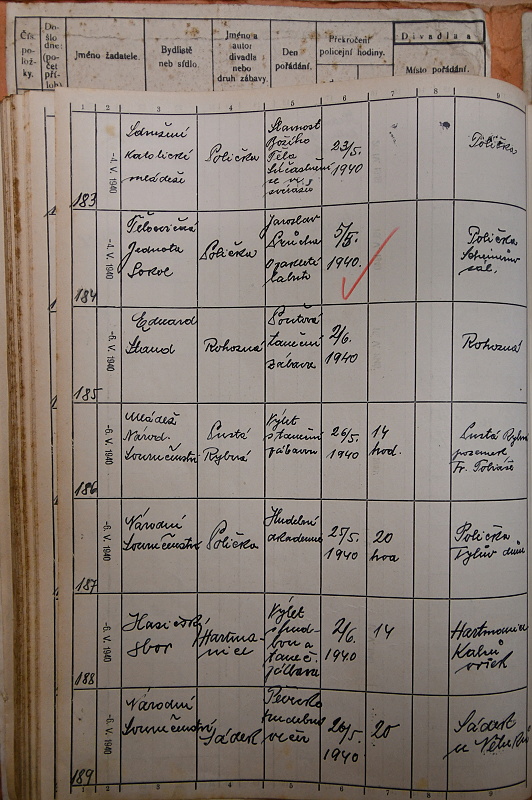 Čís. po- ložky.
Do- šlo dne: (po- čet příl- loh)
Jméno žadatele.
Bydliště neb sídlo.
Jméno a autor divadla nebo druh zábavy.
Den pořádání.
Překročení policejní hodiny.
Divadla a
Místo pořádání.
1 2 3 4 5 6 7 8 9
183
-4. V. 1940
Sdružení
katolické
mládeže
Polička
Slavnost
Božího
Těla
23/5.
1940
Polička
184
-4. V. 1940
Tělocvičná
Jednota
Sokol
Polička
Jaroslav
Průcha
labuti
5/5.
1940.
Polička
sál.
185
-6. V. 1940
Eduard
Rohozná
Pouťová
taneční
zábava
2/6.
1940
Rohozná
186
-6. V. 1940
Mládež
Národ.
Souručenství
Pustá
Rybná
Výlet
s taneční
zábavou
26/5.
1940
14
hod.
Pustá Rybná
pozemek
Fr. Tobiáše
187
-6. V. 1940
Národní
Souručenství
Polička
Hudební
akademie
25/5.
1940
20
hod
Polička
Tylův dům
188
-6. V. 1940
Hasičský
sbor
Hartma-
nice
Výlet
s hud-
bou a
taneč.
zábava
2/6.
1940
14
Hartmanice
189
-6. V. 1940
Národní
Souručenství
Sádek
Pěvecko
hudební
večer
26/5.
1940
20
Sádek
1 2 3 4 5 6 7 8 9